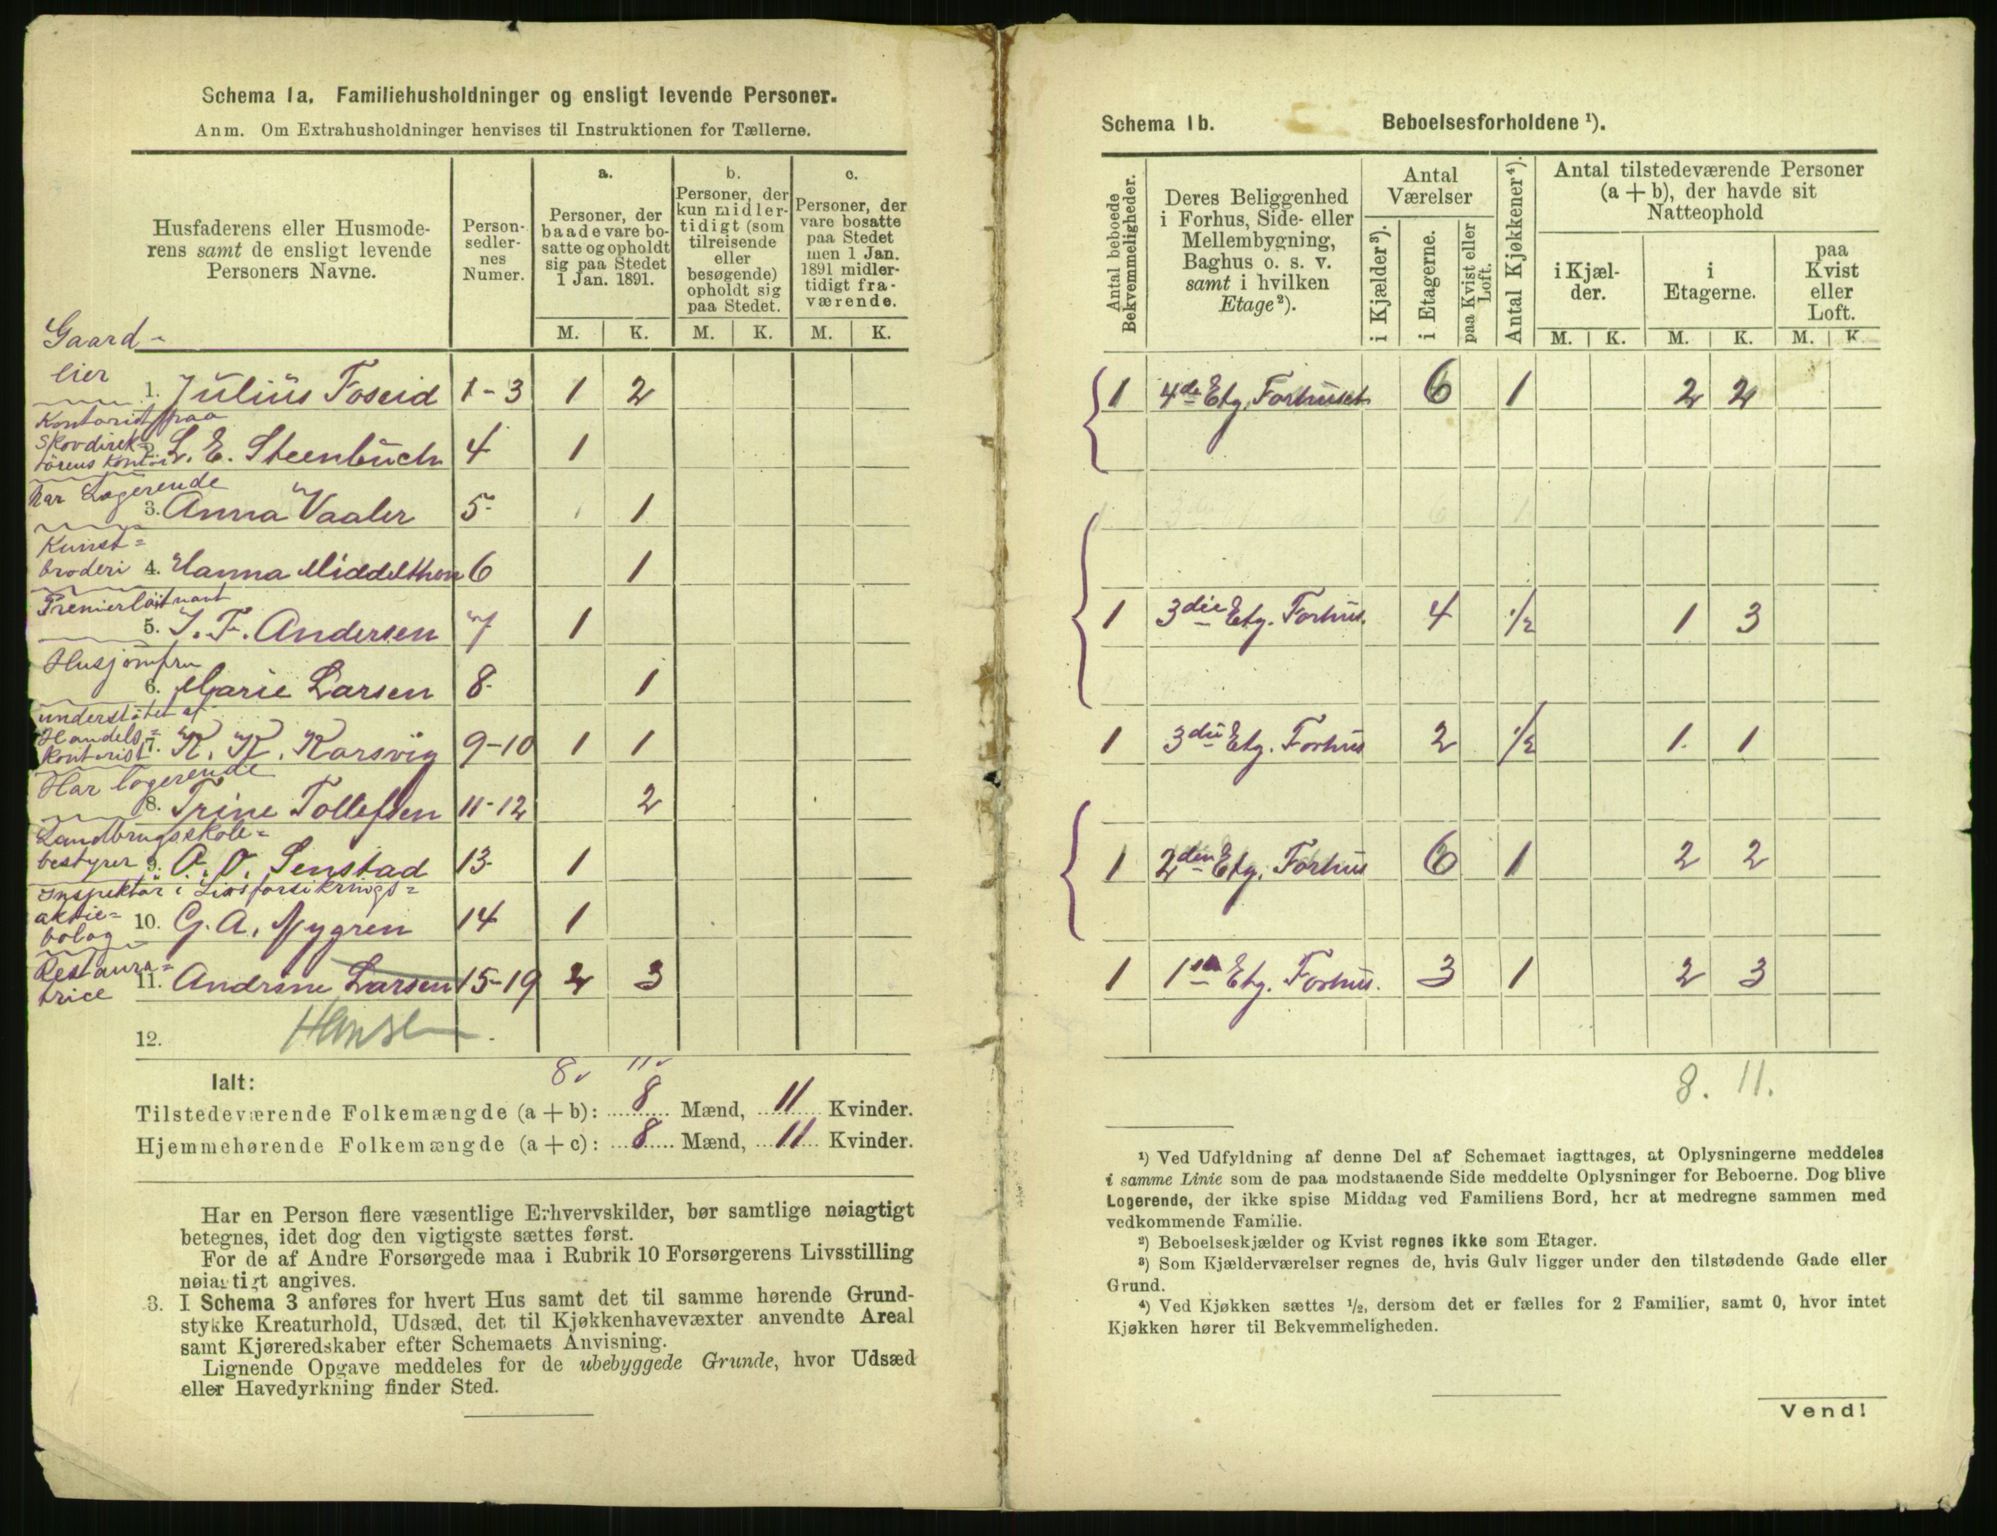 Schema 1a. Familiehusholdninger og ensligt levende Personer.
Anm. Om Extrahusholdninger henvises til Instruktionen for Tællerne.
Husfaderens eller Husmode-
rens samt de ensligt levende
Personers Navne.
Person-
sedler-
nes
Numer.
a.
Personer, der
baade vare bo-
satte og opholdt
sig paa Stedet
1 Jan. 1891.
b.
Personer, der
kun midler-
tidigt (som
tilreisende
eller
besøgende)
opholdt sig
paa Stedet.
c.
Personer, der
vare bosatte
paa Stedet
men 1 Jan.
1891 midler-
tidigt fra-
værende.
M. K. M. K. M. K.
Gaard-
eier
1. Julius Foseid 1-3 1 2
Kontorist paa
Skovdirek-
törens Kontor
2. L. E. Steenbuch 4 1
har Logerende
3. Anna Vaaler 5 1
Kunst=
broderi 4. Hanna Middelthon 6 1
Premierlöitnant
5. J. F. Andersen 7 1
Husjomfru
6. Marie Larsen 8 1
understötet af
Handels=
kontorist 7. K. K. Korsvig 9-10 1 1
Har logerende
8. Trine Tollefsen 11-12 2
Landbrugsskole=
bestyrer 9. A. O. Senstad 13 1
Inspektör i Livsforsikrings=
aktie=
bolag 10. G. A. Nygren 14 1
Restaura=
trice 11. Andrine Larsen 15-19 2 3
12. Hansen
Ialt: 8 11
Tilstedeværende Folkemængde (a + b): 8 Mænd, 11 Kvinder.
Hjemmehørende Folkemængde (a + c): 8 Mænd, 11 Kvinder.
Har en Person flere væsentlige Erhvervskilder, bør samtlige nøiagtigt
betegnes, idet dog den vigtigste sættes først.
For de af Andre Forsørgede maa i Rubrik 10 Forsørgerens Livsstilling
nøiagtigt angives.
3. I Schema 3 anføres for hvert Hus samt det til samme hørende Grund-
stykke Kreaturhold, Udsæd, det til Kjøkkenhavevæxter anvendte Areal
samt Kjøreredskaber efter Schemaets Anvisning.
Lignende Opgave meddeles for de ubebyggede Grunde, hvor Udsæd
eller Havedyrkning finder Sted.
Schema 1b. Beboelsesforholdene ¹).
Antal beboede
Bekvemmeligheder.
Deres Beliggenhed
i Forhus, Side- eller
Mellembygning,
Baghus o. s. v.
samt i hvilken
Etage²).
Antal
Værelser
i Kjælder³).
i Etagerne.
paa Kvist eller
Loft.
Antal Kjøkkener⁴).
Antal tilstedeværende Personer
(a + b), der havde sit
Natteophold
i Kjæl-
der.
i
Etagerne.
paa
Kvist
eller
Loft.
M. K. M. K. M. K.
1 4de Etg. Forhuset 6 1 2 2
1 3die Etg. Forhus. 4 1/2 1 3
1 3die Etg. Forhus 2 1/2 1 1
1 2den Etg. Forhus 6 1 2 2
1 1ste Etg. Forhus. 3 1 2 3
8. 11.
¹) Ved Udfyldning af denne Del af Schemaet iagttages, at Oplysningerne meddeles
i samme Linie som de paa modstaaende Side meddelte Oplysninger for Beboerne. Dog blive
Logerende, der ikke spise Middag ved Familiens Bord, her at medregne sammen med
vedkommende Familie.
²) Beboelseskjælder og Kvist regnes ikke som Etager.
³) Som Kjælderværelser regnes de, hvis Gulv ligger under den tilstødende Gade eller
Grund.
⁴) Ved Kjøkken sættes ½, dersom det er fælles for 2 Familier, samt 0, hvor intet
Kjøkken hører til Bekvemmeligheden.
Vend!